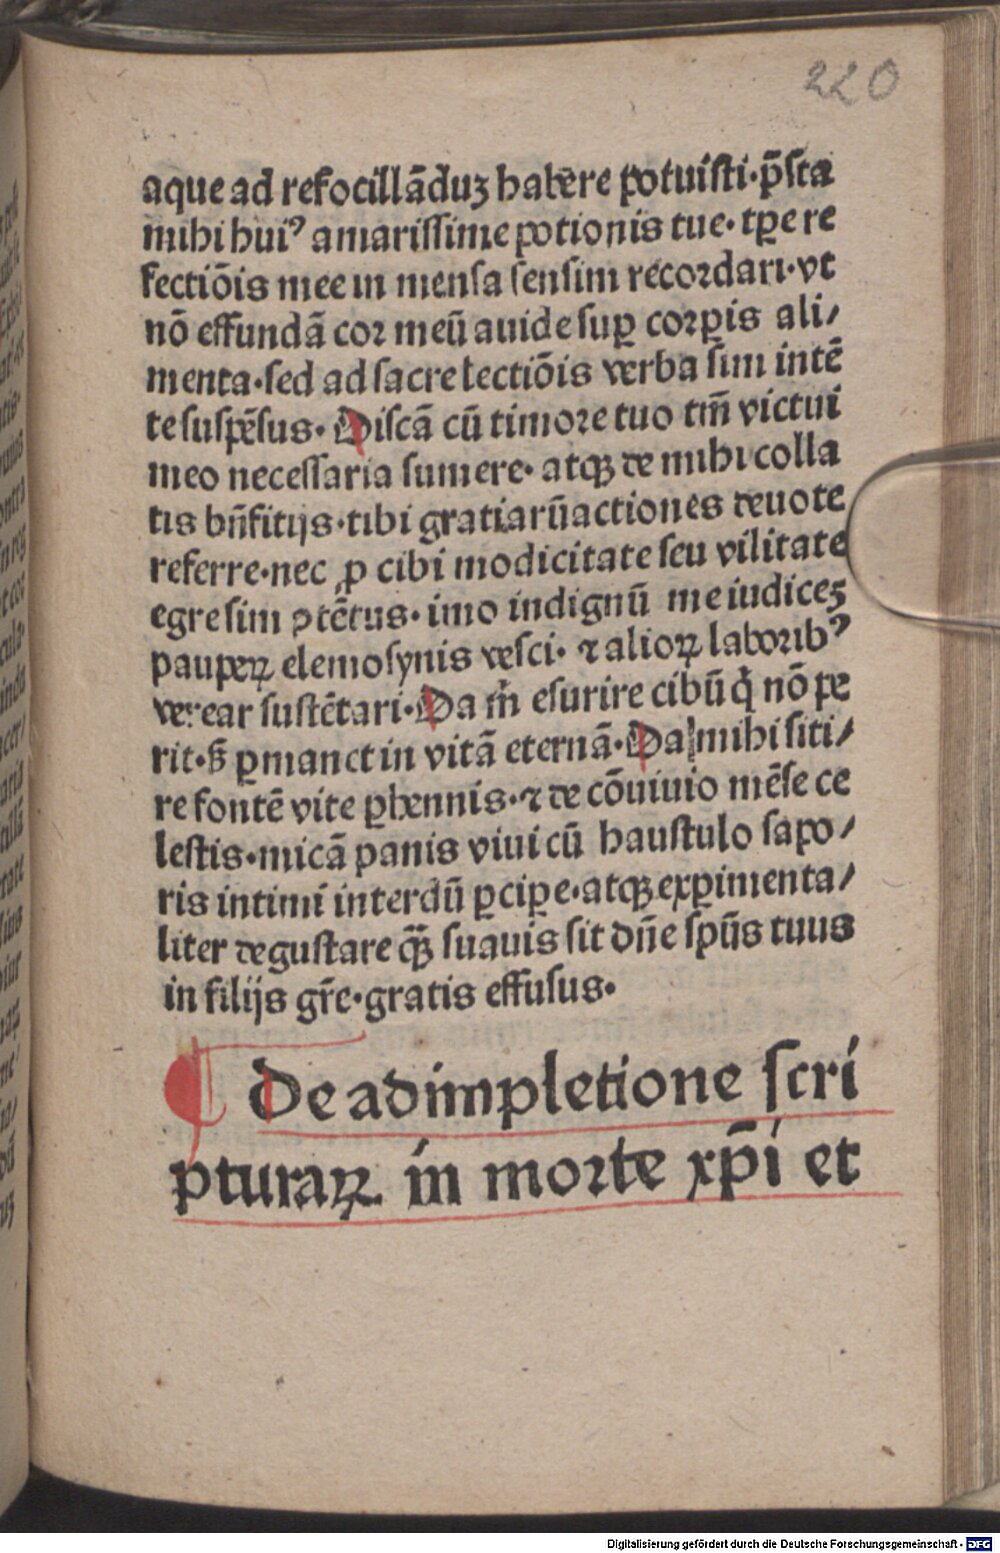 220
aque ad refocillāduȝ habere potuisti·p̄sta
mihi huiꝰ amarissime potionis tue·tꝑe re
fectiōis mee in mensa sensim recordari·vt
nō effundā cor meū auide suꝑ corꝑis ali/
menta·sed ad sacre lectiōis verba sim intē
te suspēsus· Discā cū timore tuo tm̄ victui
meo necessaria sumere· atqȝ de mihi colla
tis bn̄fitijs·tibi gratiarūactiones deuote
referre·nec ꝓ cibi modicitate seu vilitate
egre sim ꝯtētus· imo indignū me iudiceȝ
pauꝑeꝝ elemosynis vesci· ⁊ alioꝝ laboribꝰ
verear sustētari·Da m̄ esurire cibū q̇ nō pe
rit·s̄ ꝑmanet in vitā eternā·Da mihi siti/
re fontē vite ꝑhennis·⁊ de cōuiuio mēse ce
lestis·micā panis viui cū haustulo sapo/
ris intimi interdū ꝑciꝑe·atqȝ exꝑimenta/
liter degustare qȝ̄ suauis sit dn̄e spūs tuus
in filijs gr̄e·gratis effusus·
¶ De adimpletione scri
pturaꝝ in morte xp̄i et
Digitalisierung gefördert durch die Deutsche Forschungsgemeinschaft - DFG